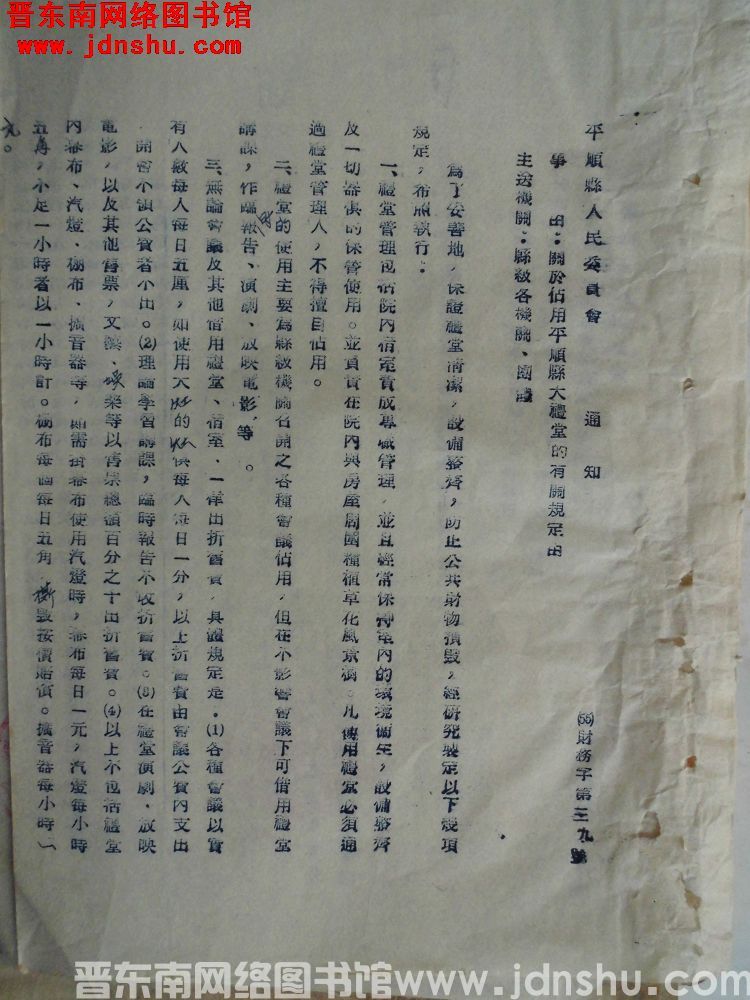 晋东南网络图书馆
www.jdnshu.com
平順縣人民委員會　通知
(55)財務字第三九號
事　由：關於佔用平順縣大禮堂的有關規定由
主送機關：縣級各機關、團體
為了妥善地，保證禮堂清潔，設備整齊，防止公共財物損毀，經研究製定以下幾項
規定，布照執行：
一、禮堂管理包括院內清室責成專職管理，並且經常保持室內的環境衛生，設備整齊
及一切器俱的保管使用。並負責在院內與房屋周圍種植草化風景樹。凡使用禮堂必須通
過禮堂管理人，不得擅自佔用。
二、禮堂的使用主要為縣級機關召開之各種會議佔用，但在不影響會議下可借用禮堂
講課，作臨時報告、演劇、放映電影、等。
三、無論會議及其他借用禮堂、清室、一律出折舊費，具體規定是：(1)各種會議以實
有人數每人每日五厘，如使用大灶的灶俱每人每日一分，以上折舊費由會議公費內支出
開會不領公費者不出。(2)理論學習講課，臨時報告不收折舊費。(3)在禮堂演劇、放映
電影，以及其他售票，文娛、娛樂等以售票總額百分之十出折舊費。(4)以上不包括禮堂
內幕布、汽燈、棚布、擴音器等，如需掛幕布使用汽燈時，幕布每日一元，汽燈每小時
五角，不足一小時者以一小時計。棚布每個每日五角，撕毀按價賠償。擴音器每小時一
元。
晋东南网络图书馆www.jdnshu.com